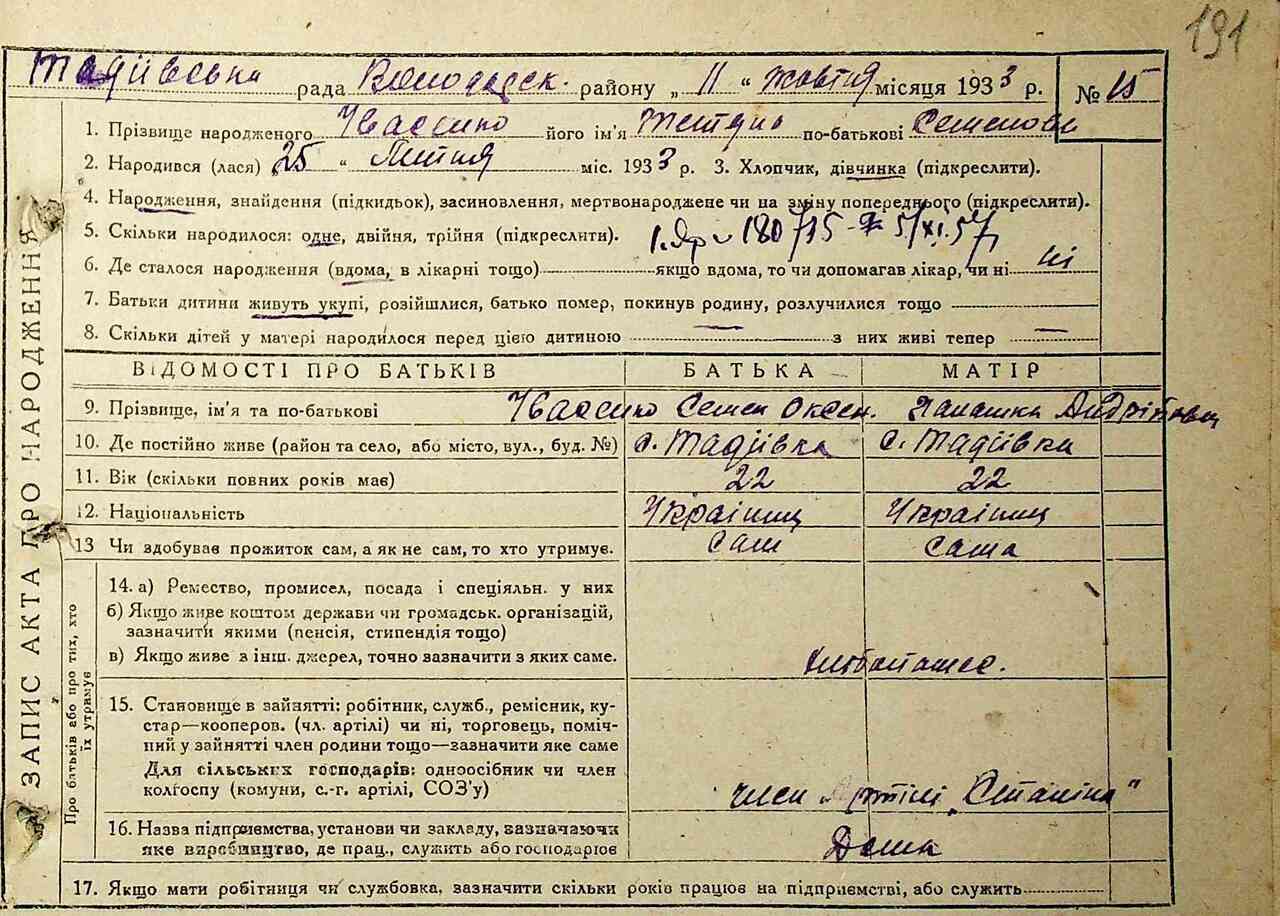 191
Тадіївська рада Володарск. району „ 11 “ жовтня місяця 1933 р. № 15
1. Прізвище народженого Івасенко його ім'я Тетяна по-батькові Семенова
2. Народився (лася) „25 “ Липня міс. 1933 р. 3. Хлопчик, дівчинка (підкреслити).
4. Народження, знайдення (підкидьок), засиновлення, мертвонароджене чи на зміну попереднього (підкреслити).
5. Скільки народилося: одне, двійня, трійня (підкреслити).
6. Де сталося народження (вдома, в лікарні тощо) якщо вдома, то чи допомагав лікар, чи ні ні
7. Батьки дитини живуть укупі, розійшлися, батько помер, покинув родину, розлучилися тощо
8. Скільки дітей у матері народилося перед цією дитиною — з них живі тепер —
ВІДОМОСТІ ПРО БАТЬКІВ БАТЬКА МАТІР
9. Прізвище, ім'я та по-батькові Івасенко Семен Оксен. Палашка Андріївна
10. Де постійно живе (район та село, або місто, вул., буд. №) с. Тадіївка с. Тадіївка
11. Вік (скільки повних років має) 22 22
12. Національність Україниц Україниц
13 Чи здобував прожиток сам, а як не сам, то хто утримує. сам сама
14. а) Ремество, промисел, посада і спеціяльн. у них
б) Якщо живе коштом держави чи громадськ. організацій,
зазначити якими (пенсія, стипендія тощо)
в) Якщо живе з інш. джерел, точно зазначити з яких саме. хлібопашес.
15. Становище в зайнятті: робітник, служб., ремісник, ку-
стар—кооперов. (чл. артілі) чи ні, торговець, поміч-
ний у зайнятті член родини тощо—зазначити яке саме
Для сільських господарів: одноосібник чи член
колгоспу (комуни, с.-г. артілі, СОЗ'у) член „Артілі „Сталіна"
16. Назва підприємства, установи чи закладу, зазначаючи
яке виробництво, де прац., служить або господарює Дома
17. Якщо мати робітниця чи службовка, зазначити скільки років працює на підприємстві, або служить
ЗАПИС АКТА ПРО НАРОДЖЕННЯ
Про батьків або про тих, хто
їх утримує